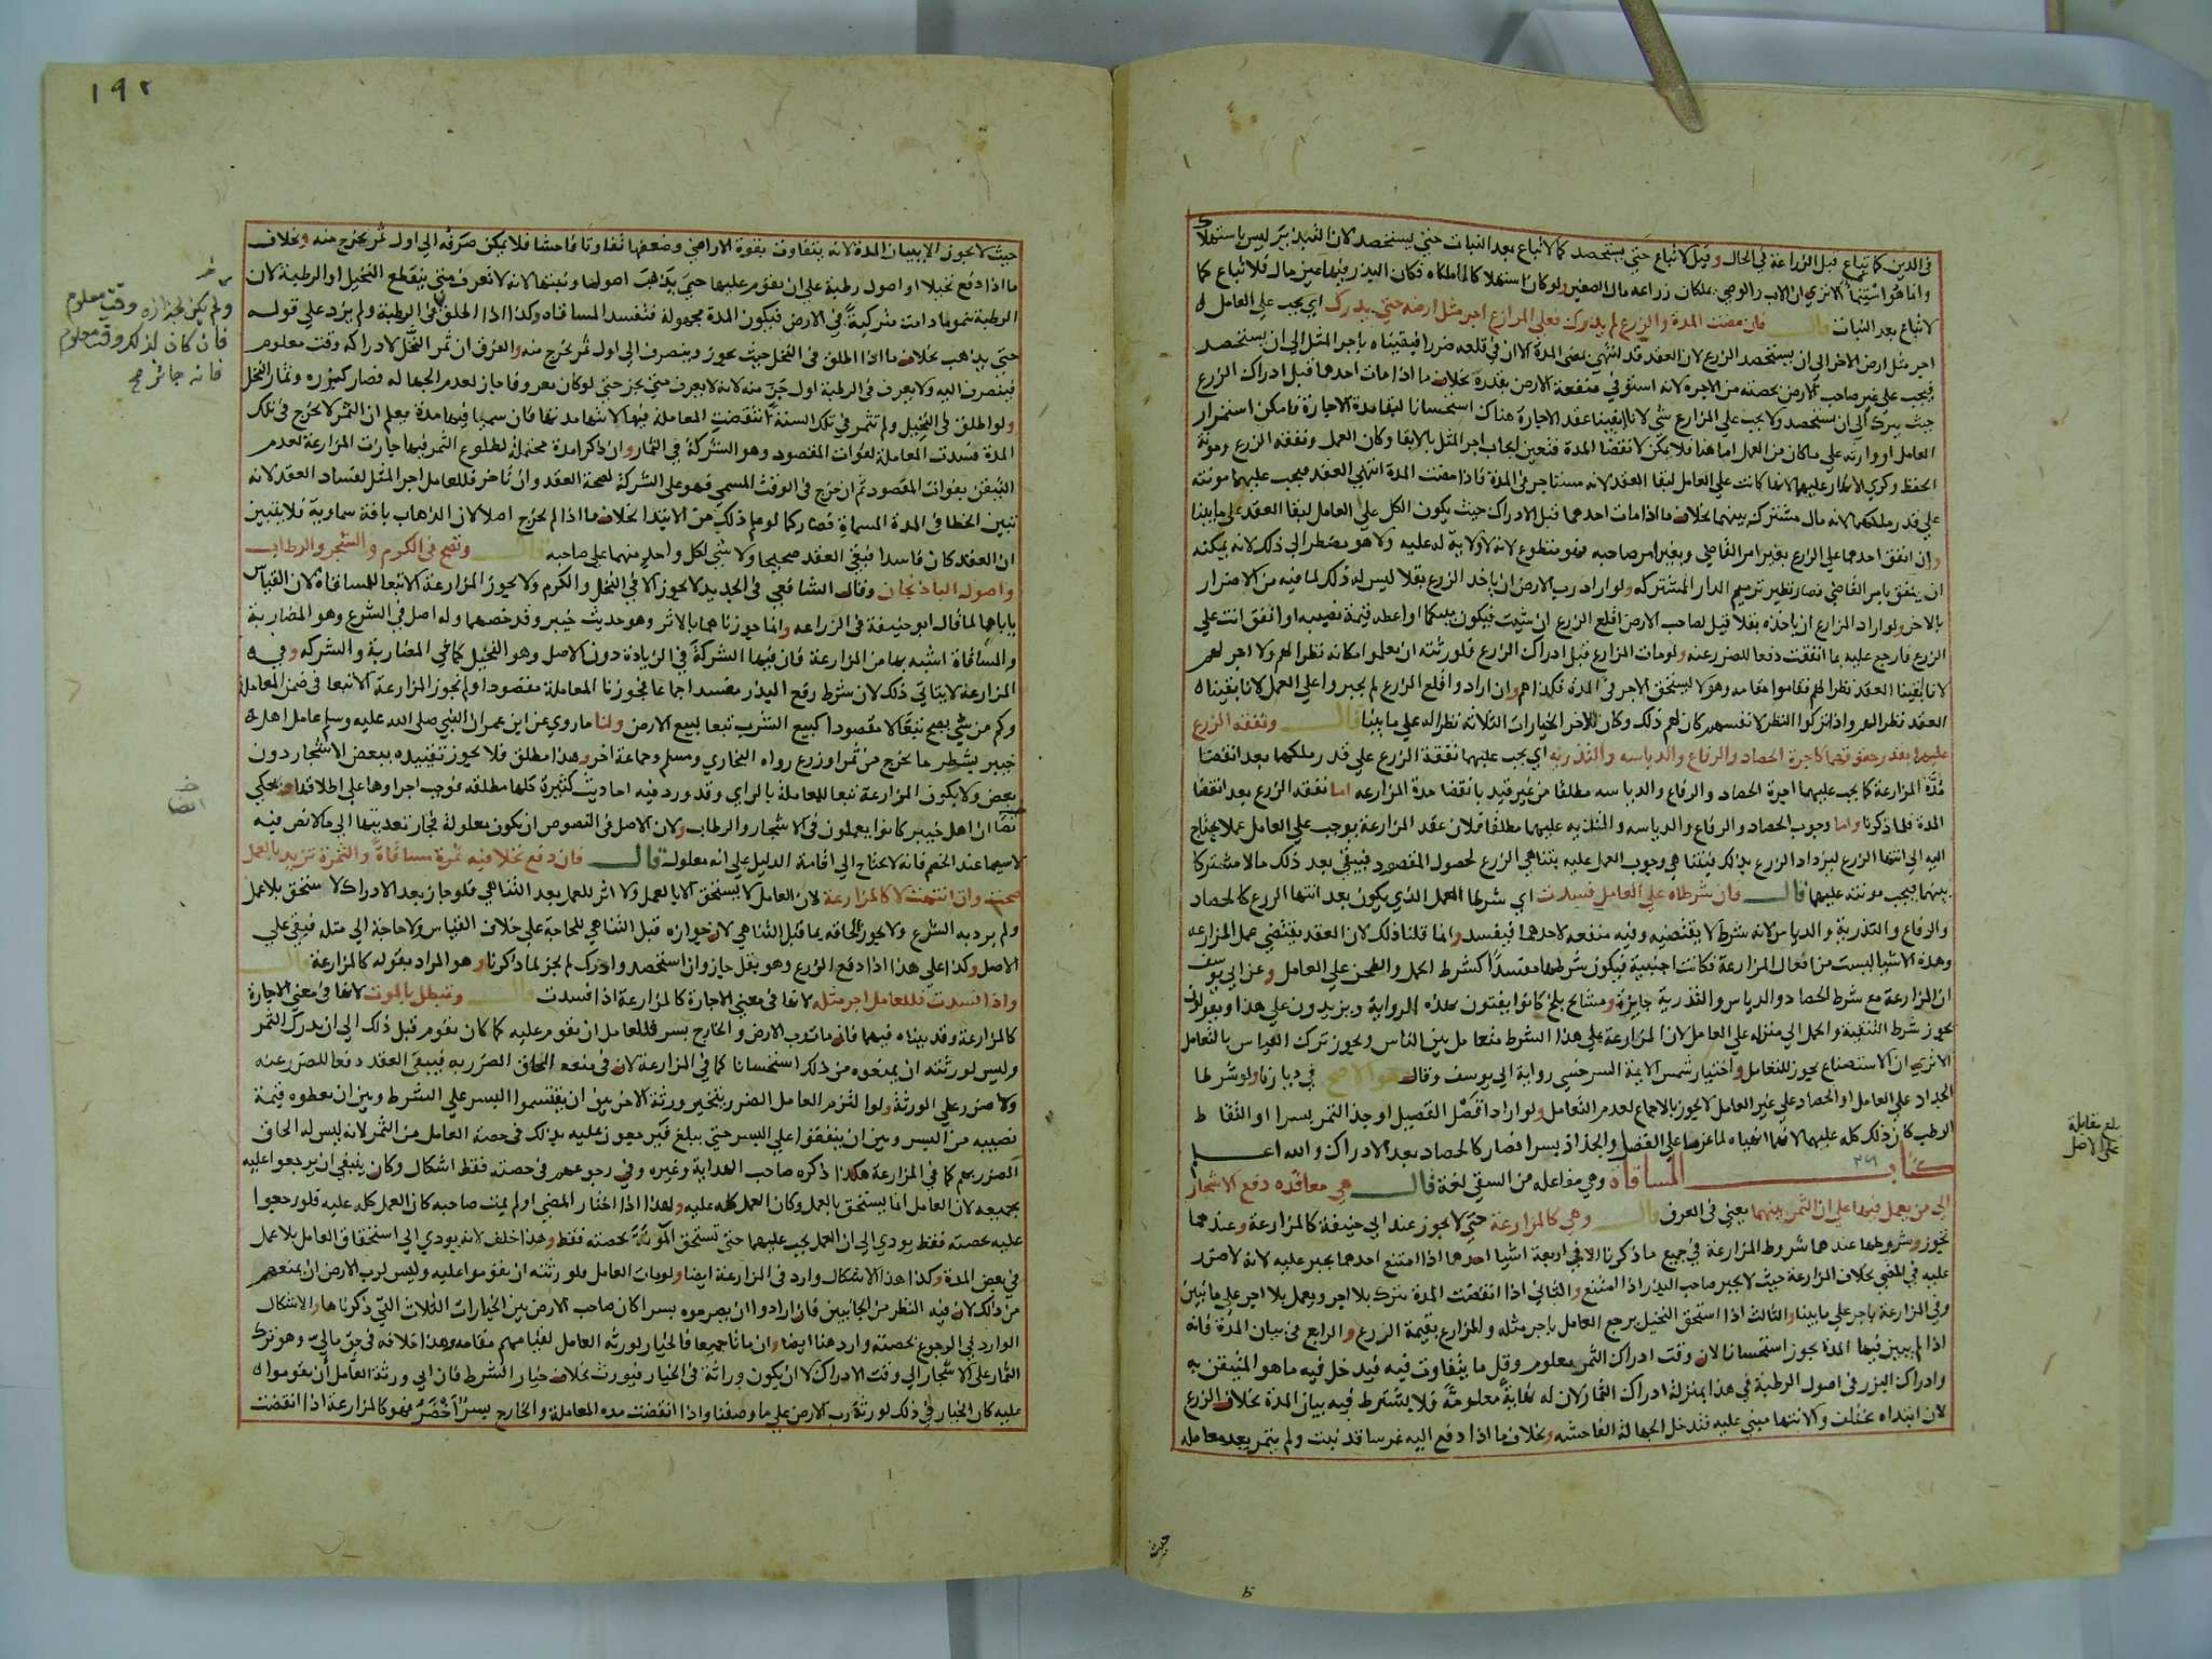 في الدين كما تباع قبل الزراعة في الحال وقيل لا تباع حتى يستحصد كما لا تباع بعد النبات حتى يستحصد لان التبذير ليس باستهلاك
وانما هو استنما الا ترى ان الاب والوصي يملكان زراعة مال الصغير ولو كان استهلاكا لما ملكاه فكان البذر فيها عين مال فلا تباع كما
لا تباع بعد النبات قال فان مضت المدة والزرع لم يدرك فعلى المزارع اجر مثل ارضه حتى يدرك اي يجب على العامل
اجر مثل ارض الاخر الى ان يستحصد الزرع لان العقد قد انتهى بمضي المدة الا ان في قلعه ضررا فبقيناه باجر المثل الى ان يستحصد
فيجب على غير صاحب الارض بحصته من الاجرة لانه استوفى منفعة الارض بقدره بخلاف ما اذا مات احدهما قبل ادراك الزرع
حيث يترك الى ان يستحصد ولا يجب على المزارع شي لانا ابقينا عقد الاجارة هناك استحسانا لبقا مدة الاجارة فامكن استمرار
العامل او وارثه على ما كان من العمل اما هنا فلا يمكن لانقضا المدة فتعين ايجاب اجر المثل بالابقا وكان العمل ونفقة الزرع ومونة
الحفظ وكري الانهار عليهما لانها كانت على العامل لبقا العقد لانه مستاجر في المدة فاذا مضت المدة انتهى العقد فيجب عليهما مونته
على قدر ملكهما لانه مال مشترك بينهما بخلاف ما اذا مات احدهما قبل الادراك حيث يكون الكل على العامل لبقا العقد على ما بينا
وان انفق احدهما على الزرع بغير امر القاضي وبغير امر صاحبه فهو متطوع لانه لا ولاية له عليه ولا هو مضطر الى ذلك لانه يمكنه
ان ينفق بامر القاضي فصار نظير ترميم الدار المشتركه ولو اراد رب الارض ان ياخذ الزرع بقلا ليس له ذلك لما فيه من الاضرار
بالاخر ولو اراد المزارع ان ياخذه بقلا قيل لصاحب الارض اقلع الزرع ان شيت فيكون بينكما او اعطه قيمة نصيبه او انفق انت على
الزرع فارجع عليه بما انفقت دفعا للضرر عنه ولو مات المزارع قبل ادراك الزرع فلورثته ان يعملوا مكانه نظرا لهم ولا اجر لهم
لانا بقينا العقد نظرا لهم فقاموا مقامه وهو لا يستحق الاجر في المدة فكذا هم وان ارادوا قلع الزرع لم يجبروا على العمل لانا بقينا
العقد نظرا لهم واذا تركوا النظر لانفسهم كان لهم ذلك وكان للاخر الخيارات الثلاثة نظرا له على ما بينا قال ونفقة الزرع
عليهما بقدر حقوقهما كاجرة الحصاد والرفاع والدياسه والتذريه اي يجب عليهما نفقة الزرع على قدر ملكهما بعد انقضا
مدة المزارعة كما يجب عليهما اجرة الحصاد والرفاع والدياسه مطلقا من غير قيد بانقضا مدة المزارعه اما نفقة الزرع بعد انقضا
المدة فلما ذكرنا واما وجوب الحصاد والرفاع والدياسه والتذريه عليهما مطلقا فلان عقد المزارعة يوجب على العامل عملا يحتاج
اليه الى انتها الزرع ليزداد الزرع بذلك فيتناهى وجوب العمل عليه بتناهي الزرع لحصول المقصود فيبقى بعد ذلك مالا مشتركا
بينهما فيجب مونته عليهما قال وان شرطاه على العامل فسدت اي شرطا العمل الذي يكون بعد انتها الزرع كالحصاد
والرفاع والتذرية والدياس لانه شرط لا يقتضيه وفيه منفعه لاحدهما فيفسد وانما قلنا ذلك لان العقد يقتضي عمل المزارعه
وهذه الاشيا ليست من افعال المزارعة فكانت اجنبية فيكون شرطها مفسدا كشرط الحمل والطحن على العامل وعن ابي يوسف
ان المزارعة مع شرط الحصاد والدياس والتذرية جايزة ومشايخ بلخ كانوا يفتون بهذه الرواية ويزيدون على هذا ويقولون
يجوز شرط التنقية والحمل الى منزله على العامل لان المزارعة على هذا الشرط متعامل بين الناس ويجوز ترك القياس بالتعامل
الا ترى ان الاستصناع يجوز للتعامل واختيار شمس الايمة السرخسي رواية ابي يوسف وقال هو الاصح في ديارنا ولو شرطا
الجداد على العامل او الحصاد على غير العامل لا يجوز بالاجماع لعدم التعامل ولو ارادا فصل القصيل او جذ التمر بسرا او التقاط
الرطب كان ذلك كله عليهما لانهما انهياه لما عزما على الفصل والجذاذ بسرا فصار كالحصاد بعد الادراك والله اعلم
كتاب المساقاة وهي مفاعله من السقي لغة قال هي معاقده دفع الاشجار
الى من يعمل فيها على ان الثمر بينهما يعني في العرف قال وهي كالمزارعة حتى لا يجوز عند ابي حنيفة كالمزارعة وعندهما
تجوز وشروطها عندهما شروط المزارعة في جميع ما ذكرنا الا في اربعة اشيا احدها اذا امتنع احدهما يجبر عليه لانه لا ضرر
عليه في المضي بخلاف المزارعة حيث لا يجبر صاحب البذر اذا امتنع والثاني اذا انقضت المدة يترك بلا اجر ويعمل بلا اجر على ما تبين
وفي المزارعة باجر على ما بينا والثالث اذا استحق النخيل يرجع العامل باجر مثله والمزارع بقيمة الزرع والرابع في بيان المدة فانه
اذا لم يبين فيها المدة يجوز استحسانا لان وقت ادراك الثمر معلوم وقل ما يتفاوت فيه فيدخل فيه ما هو المتيقن به
وادراك البزر في اصول الرطبة في هذا بمنزلة ادراك الثمار لان له نهاية معلومة فلا يشترط فيه بيان المدة بخلاف الزرع
لان ابتداه يختلف والانتها مبني عليه فتدخل الجهالة الفاحشه وبخلاف ما اذا دفع اليه غرسا قد نبت ولم يثمر بعد معاملة
حيث
بلغ مقابلة
على الاصل
١٩٢
حيث لا يجوز الا ببيان المدة لانه يتفاوت بقوة الاراضي وضعفها تفاوتا فاحشا فلا يمكن صرفه الى اول ثمر يخرج منه وبخلاف
ما اذا دفع نخيلا او اصول رطبة على ان يقوم عليها حتى يذهب اصولها ونبتها لانه لا تعرف متى ينقطع النخيل او الرطبة لان
الرطبة تنمو ما دامت متركبة في الارض فيكون المدة مجهولة فتفسد المساقاه وكذا اذا اطلق في الرطبة ولم يزد على قوله
حتى يذهب بخلاف ما اذا اطلق في النخل حيث يجوز وينصرف الى اول ثمر يخرج منه والفرق ان ثمر النخل لادراكه وقت معلوم
فينصرف اليه ولا يعرف في الرطبة اول جزة منه لانه لا يعرف متى يجز حتى لو كان معروفا جاز لعدم الجهالة فصار كبزره وثمار النخل
ولو اطلق في النخيل ولم تثمر في تلك السنة انتقضت المعاملة فيها لانتهاء مدتها فان سميا فيها مدة يعلم ان الثمر لا يخرج في تلك
المدة فسدت المعاملة لفوات المقصود وهو الشركة في الثمار وان ذكرا مدة محتملة لطلوع الثمر فيها جازت المزارعة لعدم
التيقن بفوات المقصود ثم ان خرج في الوقت المسمى فهو على الشركة لصحة العقد وان تاخر فللعامل اجر المثل لفساد العقد لانه
تبين الخطا في المدة المسماة فصار كما لو علم ذلك من الابتدا بخلاف ما اذا لم يخرج اصلا لان الذهاب بافة سماوية فلا يتبين
ان العقد كان فاسدا فبقي العقد صحيحا ولا شي لكل واحد منهما على صاحبه قال وتصح في الكرم والشجر والرطاب
واصول الباذنجان وقال الشافعي في الجديد لا يجوز الا في النخل والكرم ولا يجوز المزارعة الا تبعا للمساقاة لان القياس
ياباهما لما قال ابو حنيفة في الزراعه وانما جوزناهما بالاثر وهو حديث خيبر وقد خصهما وله اصل في الشرع وهو المضاربة
والمساقاة اشبه بها من المزارعة فان فيها الشركة في الزيادة دون الاصل وهو النخيل كما في المضاربة والشركه وفي
المزارعة لا يتاتى ذلك لان شرط رفع البذر مفسد اجماعا فجوزنا المعاملة مقصودا ولم تجوز المزارعة الا تبعا في ضمن المعاملة
وكم من شي يصح تبعا لا مقصودا كبيع الشرب تبعا لبيع الارض ولنا ما روي عن ابن عمر ان النبي صلى الله عليه وسلم عامل اهل
خيبر بشطر ما يخرج من ثمر او زرع رواه البخاري ومسلم وجماعة اخر وهذا مطلق فلا يجوز تقييده ببعض الاشجار دون
بعض ولا يكون المزارعة تبعا للمعاملة بالراي وقد ورد فيه احاديث كثيرة كلها مطلقه فوجب اجراوها على اطلاقها ويحكى
نصا ان اهل خيبر كانوا يعملون في الاشجار والرطاب ولان الاصل في النصوص ان يكون معلولة فجاز تعديتها الى ما لا نص فيه
لا سيما عند الخصم فانه لا يحتاج الى اقامة الدليل على انه معلول قال فان دفع نخلا فيه ثمرة مساقاة والثمرة تزيد بالعمل
صحت وان انتهت لا كالمزارعة لان العامل لا يستحق الا بالعمل ولا اثر للعمل بعد التناهي فلو جاز بعد الادراك لاستحق بلا عمل
ولم يرد به الشرع ولا يجوز الحاقه بما قبل التناهي لان جوازه قبل التناهي للحاجة على خلاف القياس ولا حاجة الى مثله فبقي على
الاصل وكذا على هذا اذا دفع الزرع وهو بقل جاز وان استحصد وادرك لم يجز لما ذكرنا وهو المراد بقوله كالمزارعة قال
واذا فسدت فللعامل اجر مثله لانها في معنى الاجارة كالمزارعة اذا فسدت قال وتبطل بالموت لانها في معنى الاجارة
كالمزارعة وقد بيناه فيها فان مات رب الارض والخارج بسر فللعامل ان يقوم عليه كما كان يقوم قبل ذلك الى ان يدرك الثمر
وليس لورثته ان يمنعوه من ذلك استحسانا كما في المزارعة لان في منعه الحاق الضرر به فيبقى العقد دفعا للضرر عنه
ولا ضرر على الورثة ولو التزم العامل الضرر يتخير ورثة الاخر بين ان يقتسموا البسر على الشرط وبين ان يعطوه قيمة
نصيبه من البسر وبين ان ينفقوا على البسر حتى يبلغ فيرجعون عليه بذلك في حصة العامل من الثمر لانه ليس له الحاق
الضرر بهم كما في المزارعة هكذا ذكره صاحب الهداية وغيره وفي رجوعهم في حصته فقط اشكال وكان ينبغي ان يرجعوا عليه
بجميعه لان العامل انما يستحق بالعمل وكان العمل كله عليه ولهذا اذا اختار المضي او لم يمت صاحبه كان العمل كله عليه فلو رجعوا
عليه بحصته فقط يودي الى ان العمل يجب عليهما حتى تستحق المونة بحصته فقط وهذا خلف لانه يودي الى استحقاق العامل بلا عمل
في بعض المدة وكذا هذا الاشكال وارد في المزارعة ايضا ولو مات العامل فلورثته ان يقوموا عليه وليس لرب الارض ان يمنعهم
من ذلك لان فيه النظر من الجانبين فان ارادوا ان يصرموه بسرا كان صاحب الارض بين الخيارات الثلاث التي ذكرناها والاشكال
الوارد في الرجوع بحصته وارد هنا ايضا وان ماتا جميعا فالخيار لورثة العامل لقيامهم مقامه وهذا خلافه في حق مالي وهو ترك
الثمار على الاشجار الى وقت الادراك لا ان يكون وراثة في الخيار فيورث بخلاف خيار الشرط فان ابى ورثة العامل ان يقوموا
عليه كان الخيار في ذلك لورثة رب الارض على ما وصفنا واذا انقضت مدة المعاملة والخارج بسر اخضر فهو كالمزارعة اذا انقضت
ولم يكن لجزازه وقت معلوم
فان كان لذلك وقت معلوم
فانه جائز صح
ايضا